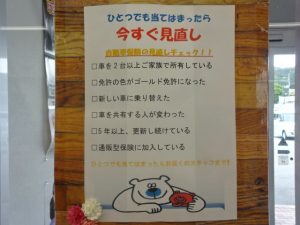 ひとつでも当てはまったら
今すぐ見直し
自動車保険の見直しチェック！！
□車を２台以上ご家族で所有している
□免許の色がゴールド免許になった
□新しい車に乗り替えた
□車を共有する人が変わった
□５年以上、更新し続けている
□通販型保険に加入している
ひとつでも当てはまったらお近くのスタッフまで!!